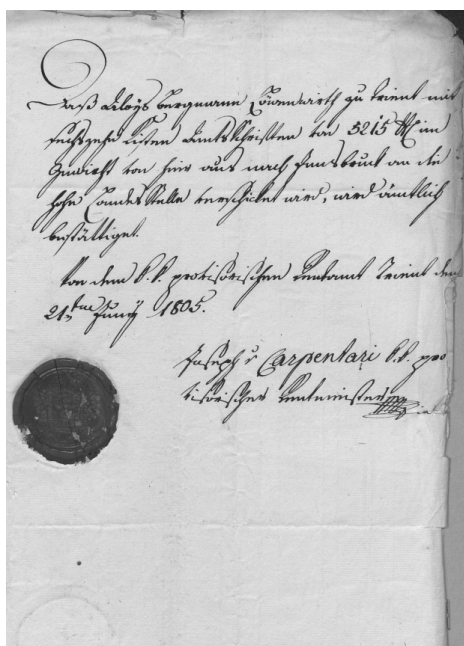 Daß Aloÿs Bergmann Löwenwirth zu Trient mit
sechszehn Kisten Amtsschriften von 5215 ℔ im
Gewicht von hier aus nach Innsbruck an die
hohe Landes Stelle verschicket wird, wird ämtlich
bestättiget.
Von dem k. k. provisorischen Rentamt Trient den
21ten Junÿ 1805.
Joseph v Carpentari k. k. pro
visorischer Rentmeister